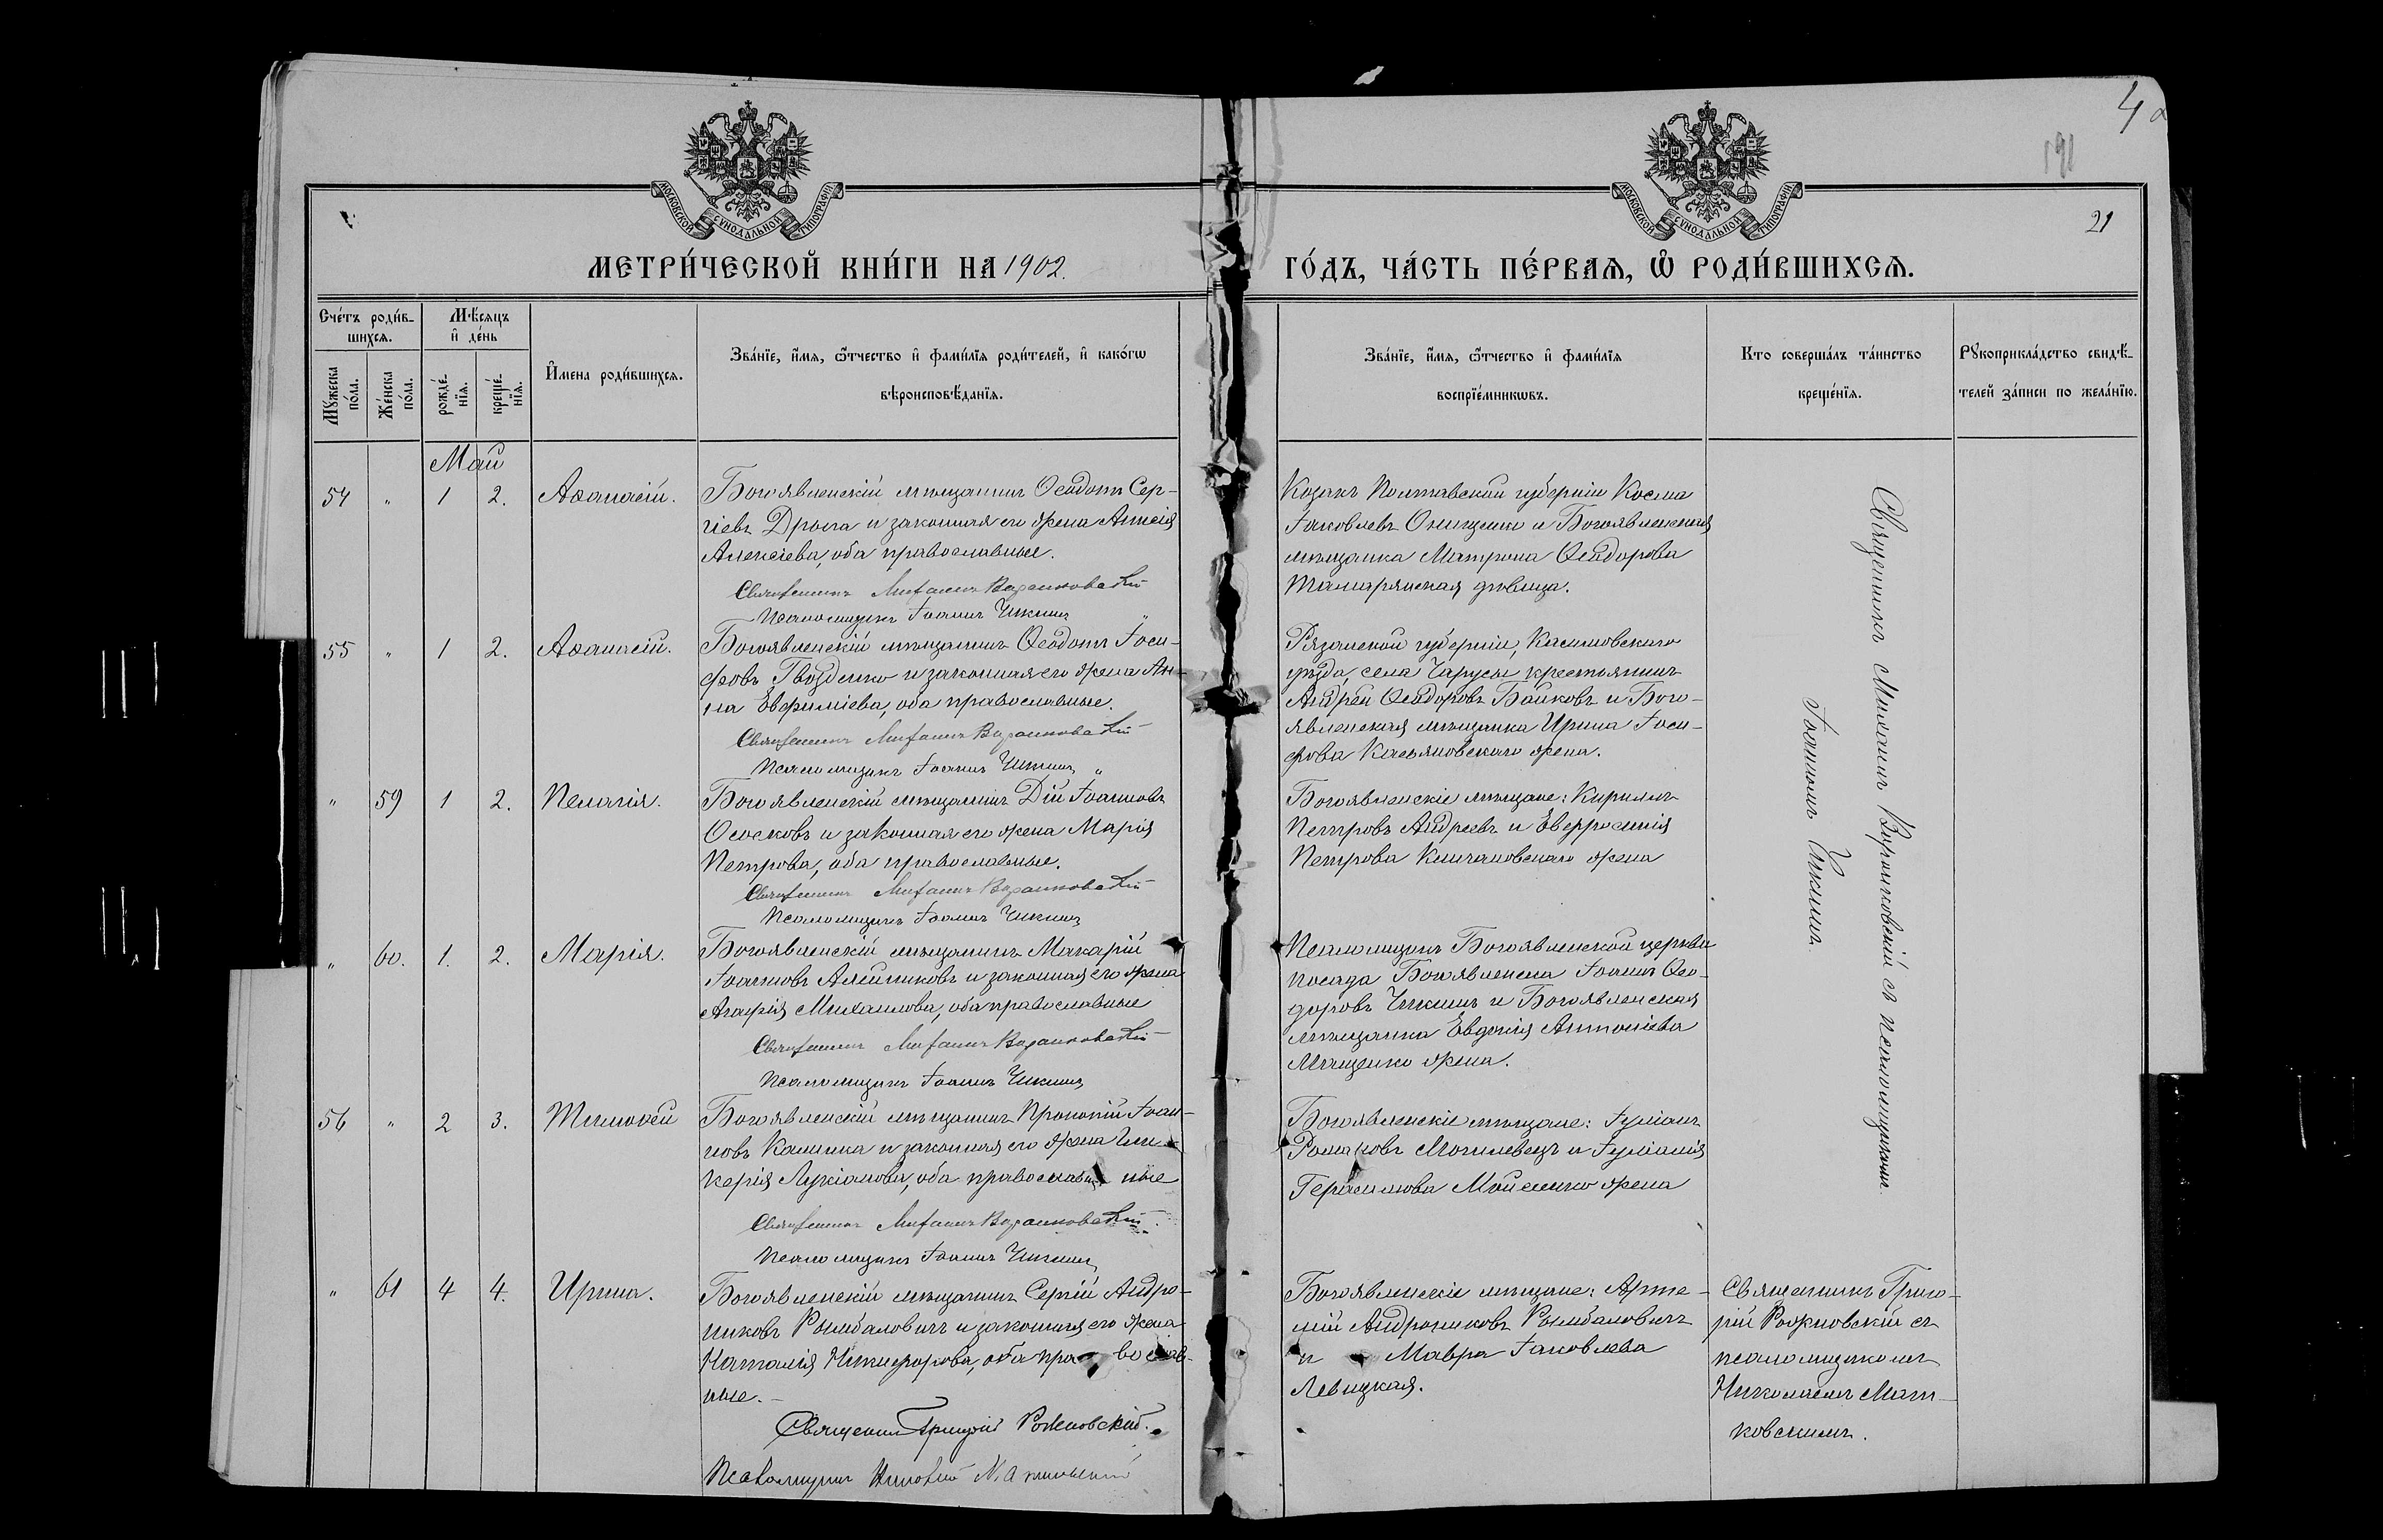 4
191
21
МОСКОВСКОЙ СѴНОДАЛЬНОЙ ТИПОГРАФІИ
МОСКОВСКОЙ СѴНОДАЛЬНОЙ ТИПОГРАФІИ
МЕТРИ́ЧЕСКОЙ КНИ́ГИ НА 1902.
ГО́ДЪ, ЧА́СТЬ ПЕ́РВАѦ, Ѽ РОДИ́ВШИХСѦ.
Сче́тъ роди́в-
шихсѧ.
Мѣ́сяцъ
и҆ де́нь
Мꙋ́жеска
по́ла.
Же́нска
по́ла.
рожде́-
нїѧ.
креще́-
нїѧ.
И҆мена роди́вшихсѧ.
Зва́нїе, и҆́мѧ, ѻ҆́тчество и҆ фами́лїѧ роди́телей, и҆ како́гѡ
вѣроисповѣ́данїѧ.
Зва́нїе, и҆́мѧ, ѻ҆́тчество и҆ фами́лїѧ
воспрїе́мникѡвъ.
Кто соверша́лъ та́инство
креще́нїѧ.
Рꙋкоприкла́дство свидѣ́-
телей за́писи по жела́нїю.
Май
54 " 1 2. Аѳанасій.
Богоявленскій мѣщанинъ Ѳеодотъ Сер-
гіевъ Дрыга и законная его жена Анисія
Алексіева, оба православные.
Священникъ Михаилъ Воронковскій
Псаломщикъ Іоаннъ Чикинъ
Козакъ Полтавской губерніи Косма
Іаковлевъ Онищенко и Богоявленская
мѣщанка Матрона Ѳеодорова
дѣвица.
55 " 1 2. Аѳанасій.
Богоявленскій мѣщанинъ Ѳеодотъ Іоси-
фовъ Гвозденко и законная его жена Ан-
на Евфиміева, оба православные.
Священникъ Михаилъ Воронковскій
Псаломщикъ Іоаннъ Чикинъ "
Рязанской губерніи, Касимовскаго
уѣзда, села Чарусы крестьянинъ
Андрей Ѳеодоровъ Байковъ и Бого-
явленская мѣщанка Ирина Іоси-
фова Касьяновскаго жена.
" 59 1 2. Пелагія.
Богоявленскій мѣщанинъ Дій Іоанновъ
Ососковъ и законная его жена Марія
Петрова, оба православные.
Священникъ Михаилъ Воронковскій
Псаломщикъ Іоаннъ Чикинъ
Богоявленскіе мѣщане: Кириллъ
Петровъ Андреевъ и Евфросинія
Петрова жена
" 60. 1. 2. Марія.
Богоявленскій мѣщанинъ Макарій
Іоанновъ Алейниковъ и законная его жена
Агафія Михаилова, оба православные
Священникъ Михаилъ Воронковскій
Псаломщикъ Іоаннъ Чикинъ
Псаломщикъ Богоявленской церкви
посада Богоявленска Іоаннъ Ѳео-
доровъ Чикинъ и Богоявленская
мѣщанка Евдокія Антоніева
Мащенко жена.
56 " 2 3. Тимоѳей
Богоявленскій мѣщанинъ Прокопій Іоан-
новъ Калинка и законная его жена Гли-
керія Лукіанова, оба православные
Священникъ Михаилъ Воронковскій
Псаломщикъ Іоаннъ Чикинъ
Богоявленскіе мѣщане: Іуліанъ
Романовъ Могилевецъ и Іуліанія
Герасимова Мойсенко жена
" 61 4 4. Ирина.
Богоявленскій мѣщанинъ Сергій Андро-
никовъ Рымбаловичъ и законная его жена
Наталія Никифорова, оба православ-
ные.-
Священникъ Григорій Рожновскій.
Псаломщикъ Николай
Богоявленскіе мѣщане: Арте-
мій Андрониковъ Рымбаловичъ
и Мавра Іаковлева
Левицкая.
Священникъ Михаилъ Воронковскій съ псаломщикомъ
Іоанномъ Чикинъ
Священникъ Григо-
рій Рожновскій съ
псаломщикомъ
Николаемъ Мат-
ковскимъ.